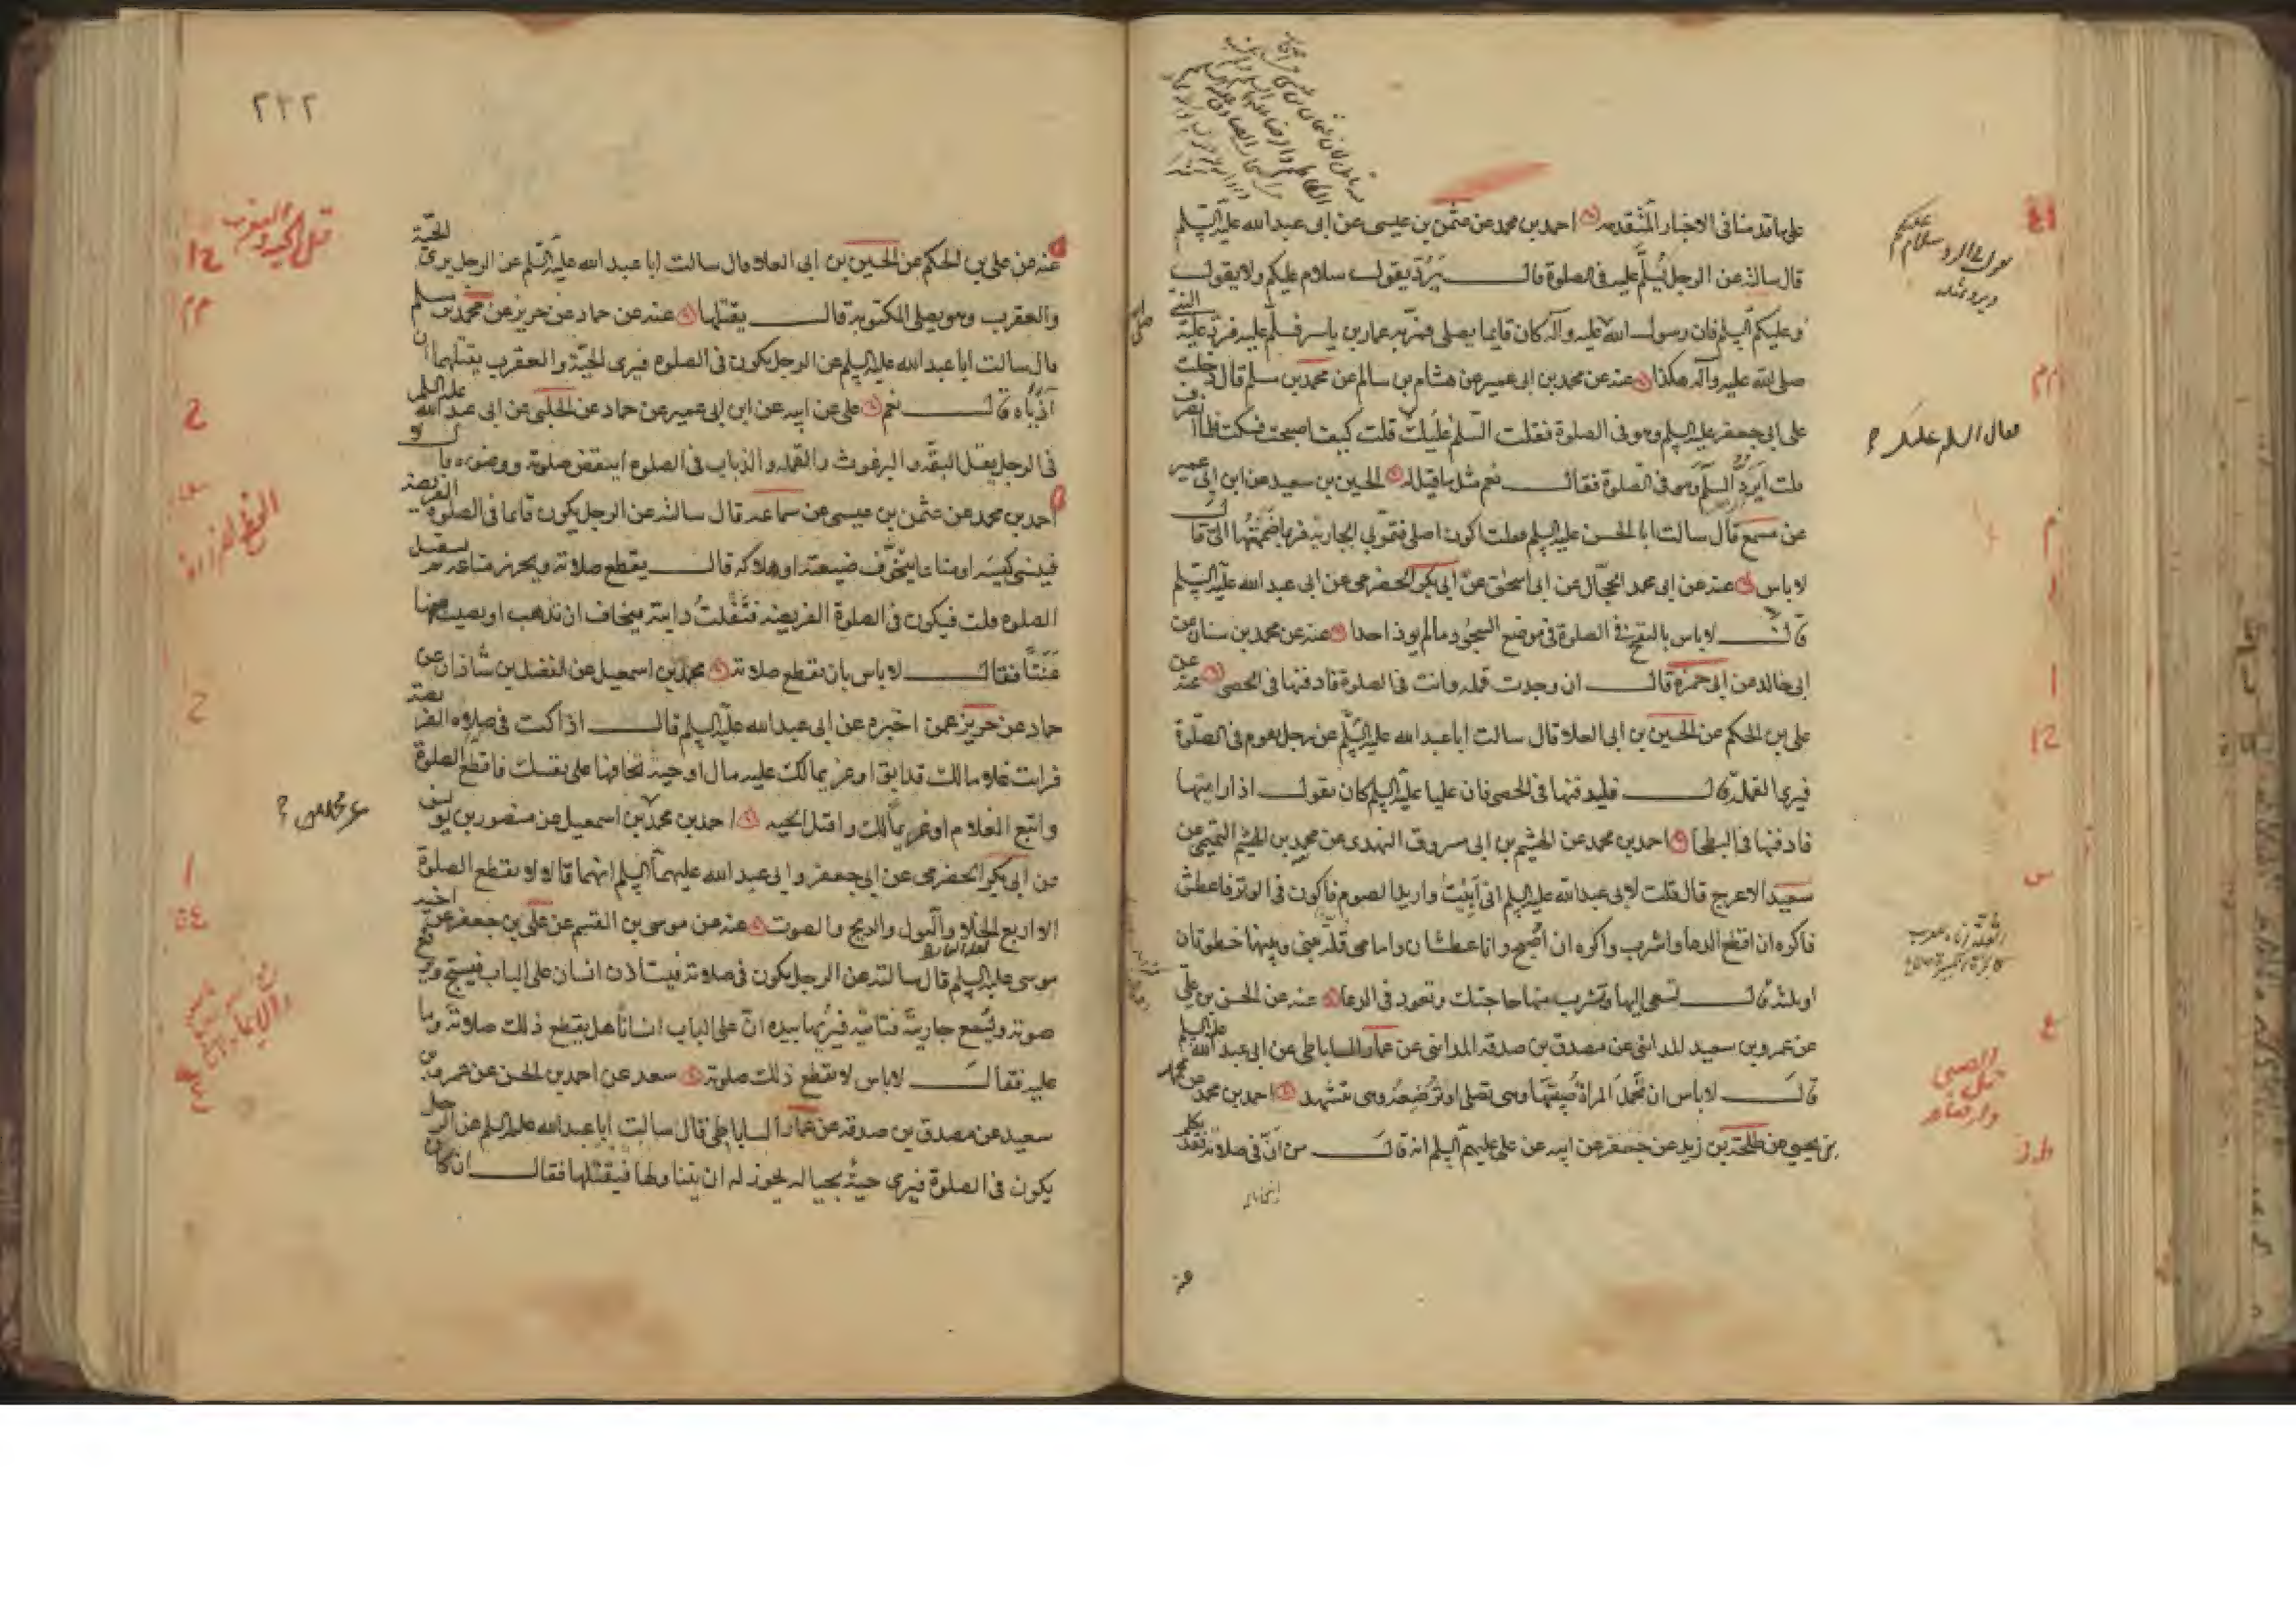 على ما قدمناه فى الاخبار المتقدمه احمد بن محمد عن عثمن بن عيسى عن ابى عبد الله عليه السلم
قال سالته عن الرجل يُسلَّم عليه فى الصلوة قال يَرُدّ يقول سلام عليكم ولا يقول
وعليكم السلم فان رسول الله صلى الله عليه وآله كان قايما يصلى فمرّ به عمار بن ياسر فسلّم عليه فردّ عليه النبى
صلى الله عليه وآله هكذا عنه عن محمد بن ابى عمير عن هشام بن سالم عن محمد بن مسلم قال دخلت
على ابى جعفر عليه السلم وهو فى الصلوة فقلت السّلم عَلَيك قلت كيف اصبحت فسكت فلما انصرف
قلت اَيَردُّ السلَم وهو فى الصّلوة فقال نعم مثل ما قيل له الحسين بن سعيد عن ابن ابى عمير
عن مسمع قال سالت ابا الحسن عليه السلم فقلت اكون اصلى فتمرّ بى الجارية فربما ضممتُها الىّ قال
لا باس عنه عن ابى محمد الحجّال عن ابى اسحٰق عن ابى بكر الحضرمى عن ابى عبد الله عليه السّلم
قال لا باس بالنفخ فى الصلوة فى موضع السجود ما لم يوذ احدا عنه عن محمد بن سنان عن
ابى خالد عن ابى حمزة قال ان وجدت قمله وانت فى الصلوة فادفنها فى الحصى عنه عن
على بن الحكم عن الحسين بن ابى العلا قال سالت ابا عبد الله عليه السّلم عن رجل يقوم فى الصّلوة
فيرى القملة قال فليدفنها فى الحصى فان عليا عليه السلم كان يقول اذا رايتها
فادفنها فى البطحا احمد بن محمد عن الهيثم بن ابى مسروق النهدى عن محمد بن الهيثم التميمى عن
سعيد الاعرج قال قلت لابى عبد الله عليه السلم انى اَبيْتُ واريد الصوم فاكون فى الوتر فاعطش
فاكره ان اقطع الدعا واشرب واكره ان اُصْبح وانا عطشان وامامى قلة بينى وبينها خطوتان
او ثلثة قال تسعى اليها وتشرب منها حاجتك وتعود فى الدعا عنه عن الحسن بن علّى
عن عمرو بن سعيد المداينى عن مصدق بن صدقه المداينى عن عمار الساباطى عن ابى عبد الله عليه السلم
قال لا باس ان تحمل المراة صبيّها وهى تصلى او ترضعه وهى تتشهد احمد بن محمد عن محمد
بن يحيى عن طلحة بن زيد عن جعفر عن ابيه عن على عليهم السلم انه قال من اَنَّ فى صلاته فقد تكلم
٢٢٢
قتل الحيه والعقرب
عنه عن على بن الحكم عن الحسين بن ابى العلا قال سالت ابا عبد الله عليه السّلم عن الرجل يرى الحيّة
والعقرب وهو يصلى المكتوبة قال يقتلها عنه عن حماد عن حريز عن محمد بن مسلم
قال سالت ابا عبد الله عليه السلم عن الرجل يكون فى الصلوه فيرى الحيّة والعقرب يقتلهما ان
آذياه قال نعم على عن ابيه عن ابن ابى عمير عن حماد عن الحلبى عن ابى عبد الله عليه السلم
فى الرجل يقتل البقّه والبرغوث والقمله والذباب فى الصلوة اينقض صلوته ووضوءه قال لا
احمد بن محمد عن عثمن بن عيسى عن سماعه قال سالته عن الرجل يكون قايما فى الصلوة الفريضه
فينسى كيسَه او متاعا يتخوّف ضيعته او هلاكه قال يقطع صلاته ويحرز متاعه ثم يستقبل
الصلوه قلت فيكون فى الصلوة الفريضه فتَفْلتُ دابته فيخاف ان تذهب او يصيب منها
عَنَتًا فقال لا باس بان يقطع صلاته محمد بن اسمعيل عن الفضل بن شاذان عن
حماد عن حريز عمن اخبره عن ابى عبد الله عليه السلم قال اذا كنت فى صلوه الفريضه
فرايت غلاما لك قد ابق او غريما لك عليه مال او حية تخافها على نفسك فاقطع الصلوة
واتبع الغلام او غريماً لك واقتل الحيه احمد بن محمد بن اسمعيل عن منصور بن يونس
عن ابى بكر الحضرمى عن ابى جعفر وابى عبد الله عليهما السلم انهما قالا لا يقطع الصلوة
الا اربع الخلا والبول والريح والصوت عنه عن موسى بن القسم عن على بن جعفر عن اخيه
موسى عليه السلم قال سالته عن الرجل يكون فى صلاته فيستاذن انسان على الباب فيسبّح ويرفع
صوته ويُسمع جاريته فتاتيه فيُريها بيده انّ على الباب انسانًا هل يقطع ذلك صلاته وما
عليه فقال لا باس لا يقطع ذلك صلوته سعد عن احمد بن الحسن عن عمرو بن
سعيد عن مصدق بن صدقه عن عمار الساباطى قال سالت ابا عبد الله عليه السلم عن الرجل
يكون فى الصلوة فيرى حيةً بحياله يجوز له ان يتناولها فيقتلها فقال ان كان